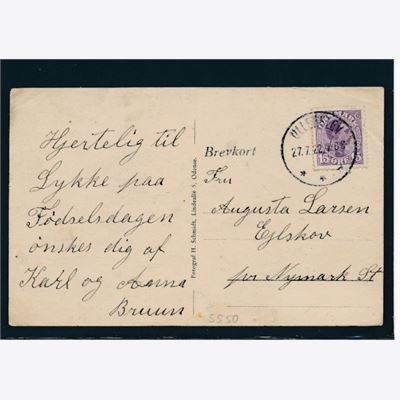 Hjertelig til
Lykke paa
Fødselsdagen
ønskes dig af
Karl og Anna
Bruun
Fotograf H. Schmidt, Lindealle 5, Odense.
Brevkort
Fru
Augusta Larsen
Ejlskov
pr Nymark St
ULLERSLEV
27.7.22
MARK
15 ØRE 15
5550